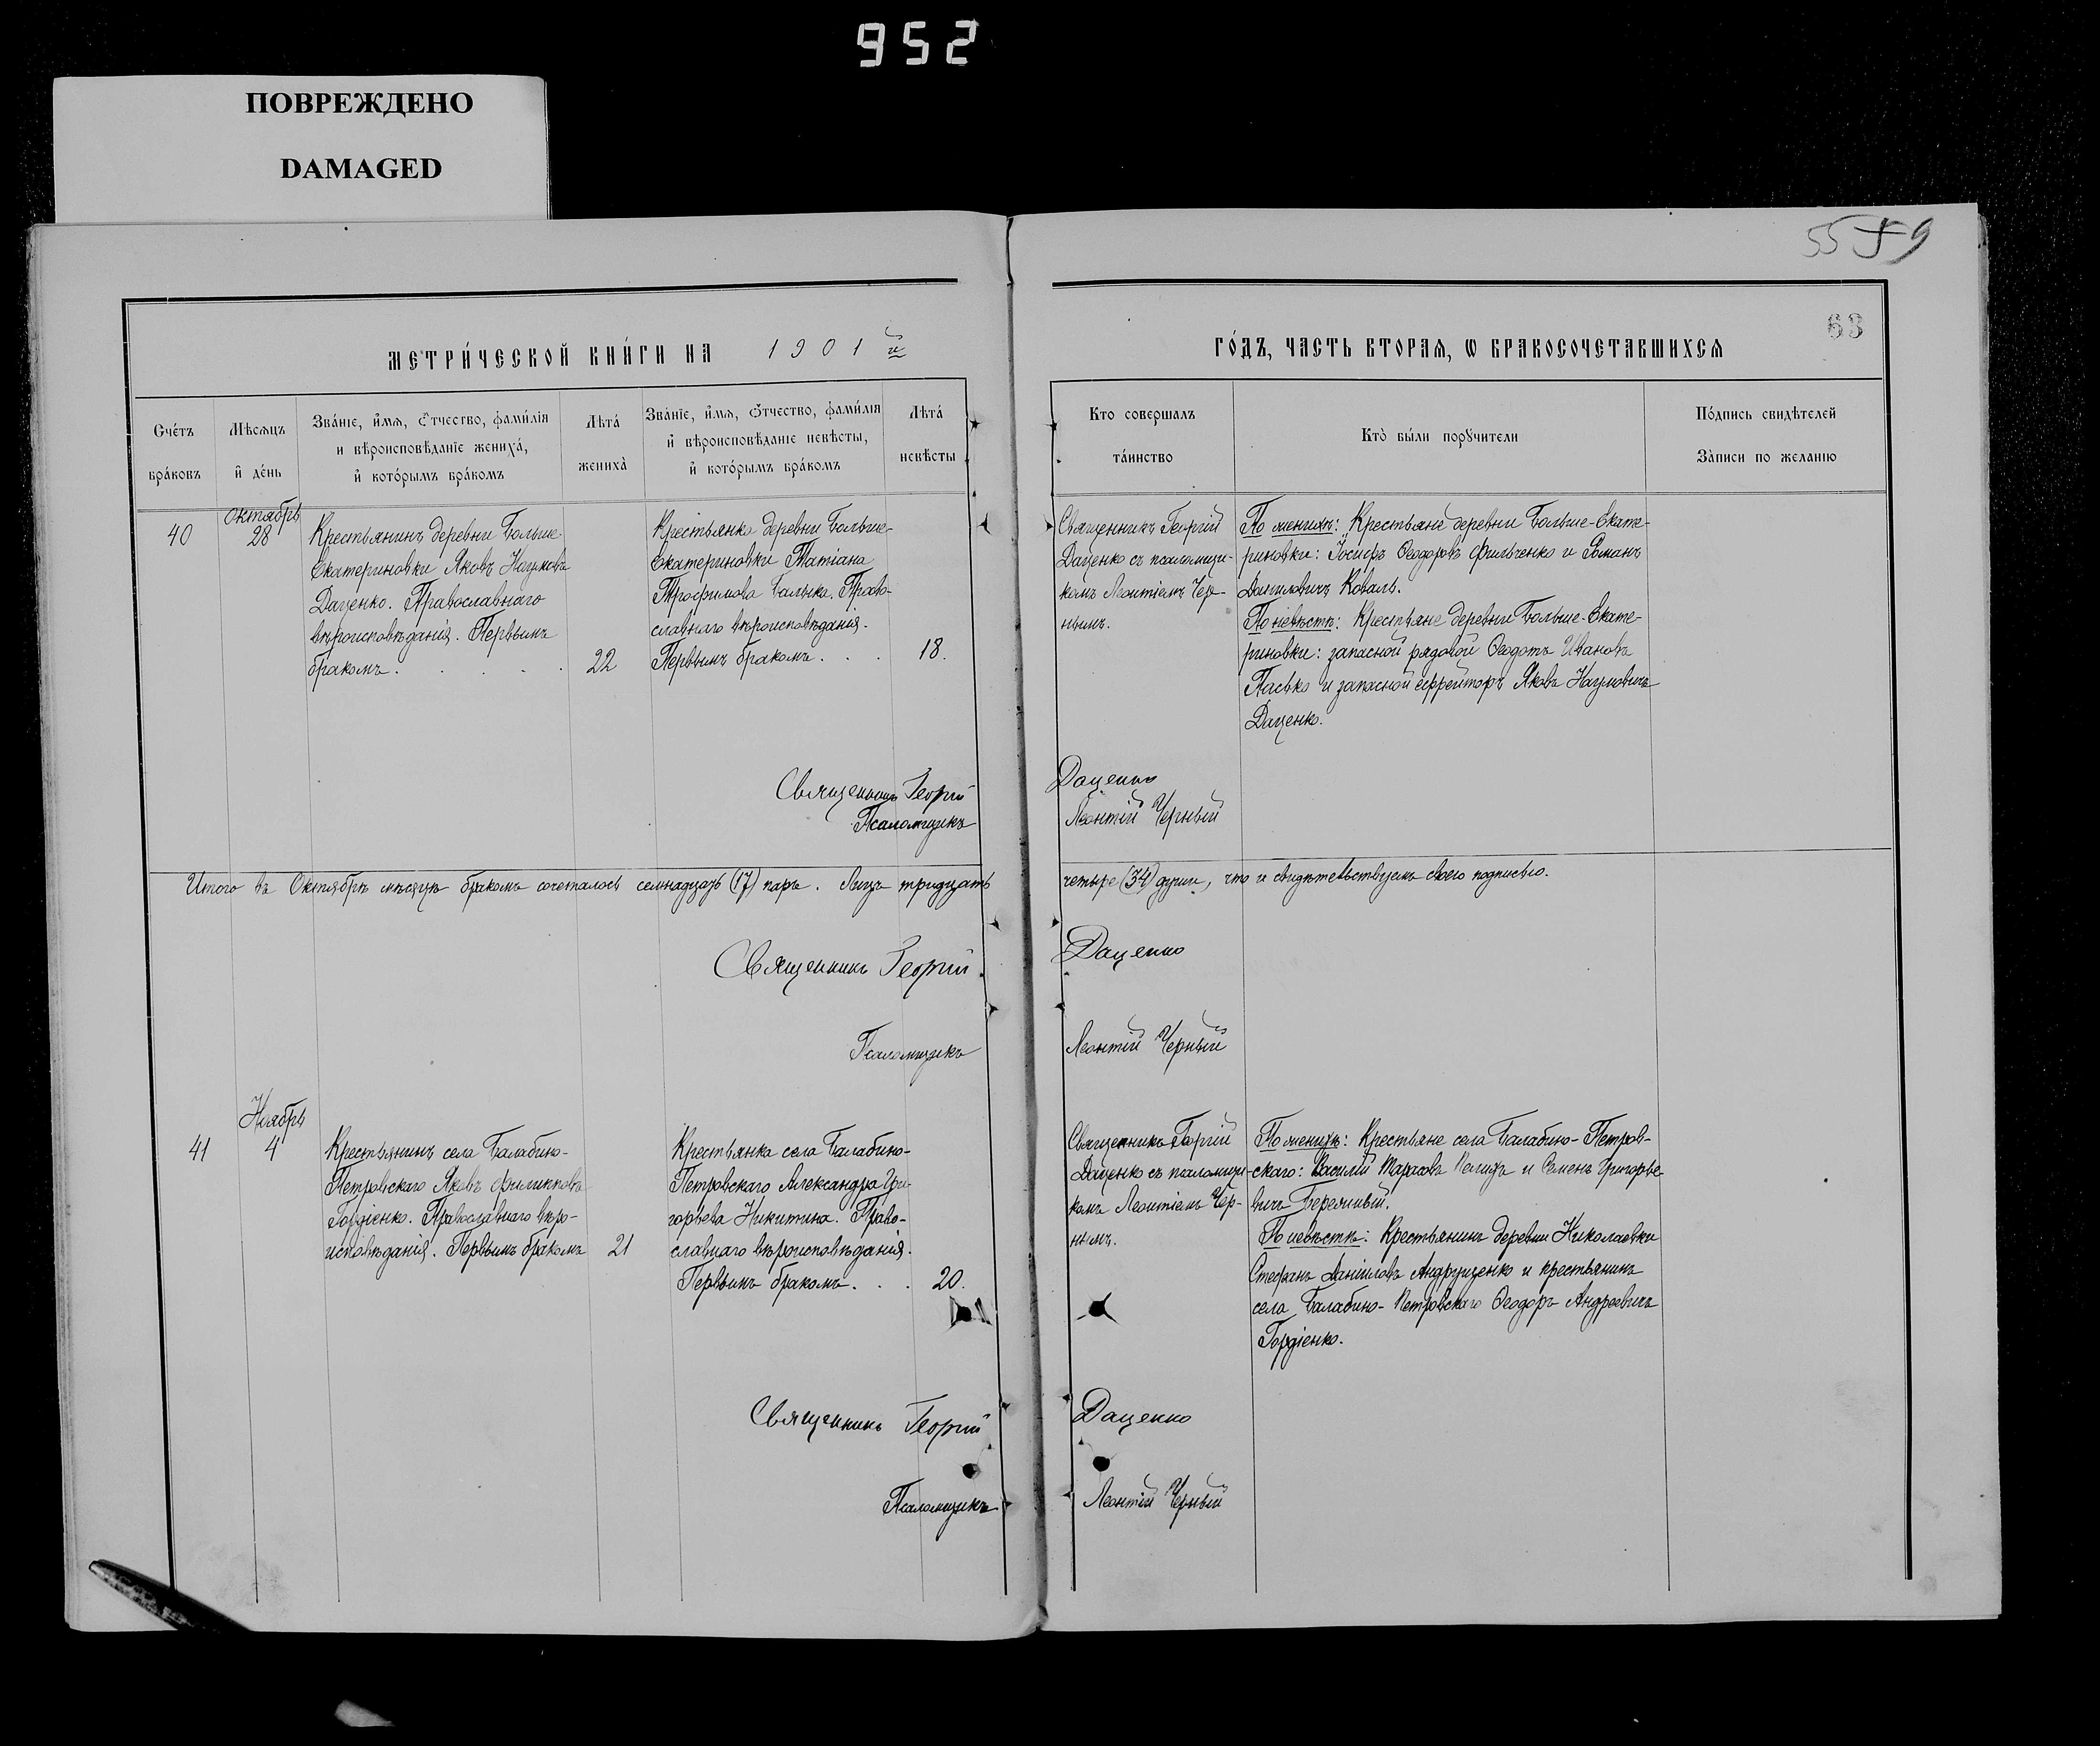 952
ПОВРЕЖДЕНО
DAMAGED
55 59
63
МЕТРИ́ЧЕСКОЙ КНИ́ГИ НА 1901 й
ГО́ДЪ, ЧАСТЬ ВТОРАѦ, Ѡ БРАКОСОЧЕТАВШИХСѦ
Счéтъ
брáковъ
Мѣсѧцъ
и дéнь
Звáнїе, и́мѧ, ѻ́тчество, фами́лїѧ
и вѣроисповѣданїе женихá,
и котóрымъ брáкомъ
Лѣтá
женихà
Звáнїе, и́мѧ, ѻ́тчество, фами́лїѧ
и вѣроисповѣданїе невѣсты,
и котóрымъ брáкомъ
Лѣтá
невѣсты
Кто совершалъ
тáинство
Ктò бы́ли порꙋчители
Пóдпись свидѣтелей
Зàписи по желанїю
40
Октябрь
28
Крестьянинъ деревни Больше-
Екатериновки Яковъ Наумовъ
Даценко. Православнаго
вѣроисповѣданія. Первымъ
бракомъ.
22
Крестьянка деревни Больше-
Екатериновки Татіана
Трофимова Балыка. Право-
славнаго вѣроисповѣданія.
Первымъ бракомъ.
18.
Священникъ Георгій
Даценко съ псаломщи-
комъ Леонтіемъ Чер-
нымъ.
По женихѣ: Крестьяне деревни Больше-Екате-
риновки: Іосифъ Ѳеодоровъ Фильченко и Романъ
Даниловичъ Коваль.
По невѣстѣ: Крестьяне деревни Больше-Екате-
риновки: запасной рядовой Ѳеодотъ Ивановъ
Пасько и запасной ефрейторъ Яковъ Наумовичъ
Даценко.
Священникъ Георгій Даценко
Псаломщикъ Леонтій Черный
Итого въ Октябрѣ мѣсяцѣ бракомъ сочеталось семнадцать (17) паръ. Лицъ тридцать четыре (34) души, что и свидѣтельствуемъ своею подписью.
Священникъ Георгій Даценко
Псаломщикъ Леонтій Черный
41
Ноябрь
4
Крестьянинъ села Балабино-
Петровскаго Яковъ Филипповъ
Гордіенко. Православнаго вѣро-
исповѣданія. Первымъ бракомъ
21
Крестьянка села Балабино-
Петровскаго Александра Гри-
горьева Никитина. Право-
славнаго вѣроисповѣданія.
Первымъ бракомъ.
20.
Священникъ Георгій
Даценко съ псаломщи-
комъ Леонтіемъ Чер-
нымъ.
По женихѣ: Крестьяне села Балабино-Петров-
скаго: Василій Тарасовъ и Семенъ Григорье-
вичъ
По невѣстѣ: Крестьянинъ деревни Николаевки
Стефанъ Даніиловъ Андрущенко и крестьянинъ
села Балабино-Петровскаго Ѳеодоръ Андреевичъ
Гордіенко.
Священникъ Георгій Даценко
Псаломщикъ Леонтій Черный